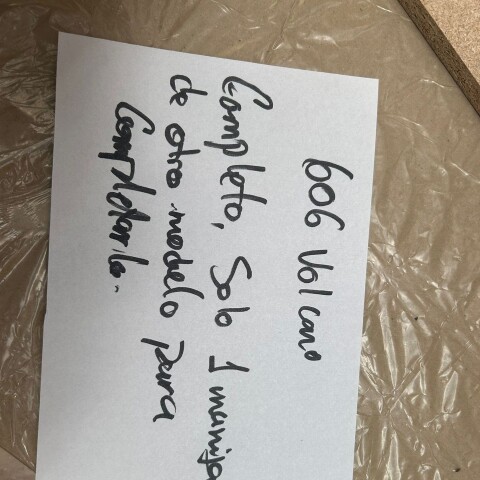 606 Volcano
Completo, Solo 1 manija
de otro modelo para
Completarlo.